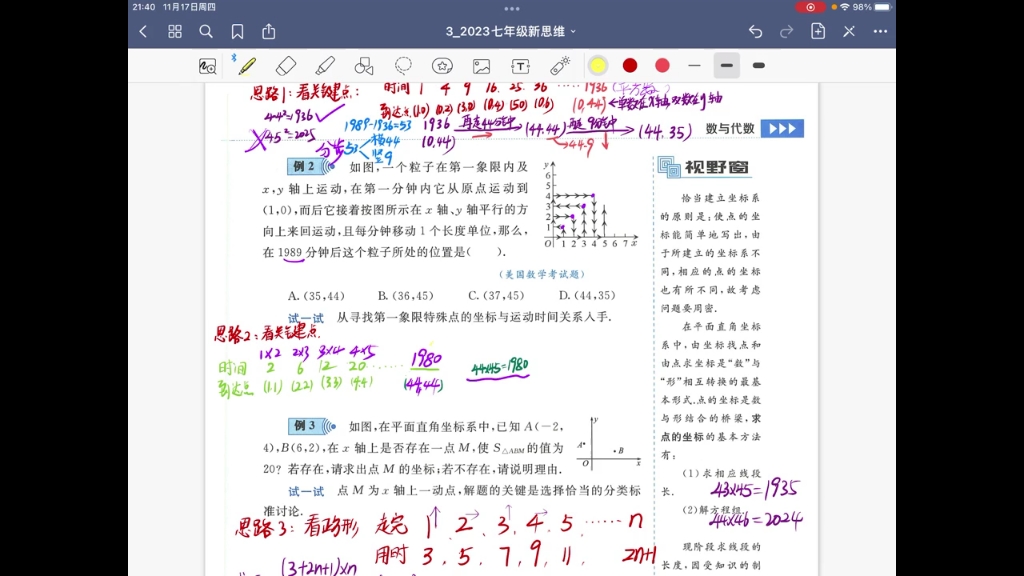 21:40 11月17日周四
98%
3_2023七年级新思维
思路1:看关键点: 时间 1 4 9 16 25 36 …… 1936 (平方数)
到达点 (1,0) (0,2) (3,0) (0,4) (5,0) (0,6) (0,44) ←单数在x轴,双数在y轴
44²=1936
45²=2025
1989-1936=53 1936 再走44步中 (44,44) 再走9步中 (44,35)
(0,44) →44-9
分步 53 横44
竖9
数与代数
例2 如图,一个粒子在第一象限内及
x,y轴上运动,在第一分钟内它从原点运动到
(1,0),而后它接着按图所示在x轴、y轴平行的方
向上来回运动,且每分钟移动1个长度单位,那么,
在1989分钟后这个粒子所处的位置是( ).
(美国数学考试题)
A.(35,44) B.(36,45) C.(37,45) D.(44,35)
试一试 从寻找第一象限特殊点的坐标与运动时间关系入手.
y
6
5
4
3
2
1
O 1 2 3 4 5 6 7 x
思路2:看关键点.
1×2 2×3 3×4 4×5
时间 2 6 12 20 …… 1980
到达点 (1,1) (2,2) (3,3) (4,4) (44,44)
44×45=1980
例3 如图,在平面直角坐标系中,已知A(-2,
4),B(6,2),在x轴上是否存在一点M,使S△ABM的值为
20?若存在,请求出点M的坐标;若不存在,请说明理由.
试一试 点M为x轴上一动点,解题的关键是选择恰当的分类标
准讨论.
y
A
B
O x
思路3:看路形 走完 1 2 3 4 5 …… n
用时 3 5 7 9 11 2n+1
(3+2n+1)×n
视野窗
恰当建立坐标系
的原则是:使点的坐
标能简单地写出,由
于所建立的坐标系不
同,相应的点的坐标
也有所不同,故考虑
问题要周密.
在平面直角坐标
系中,由坐标找点和
由点求坐标是“数”与
“形”相互转换的最基
本形式.点的坐标是数
与形结合的桥梁,求
点的坐标的基本方法
有:
(1)求相应线段
长.
43×45=1935
(2)解方程组.
44×46=2024
现阶段求线段的
长度,因受知识的制